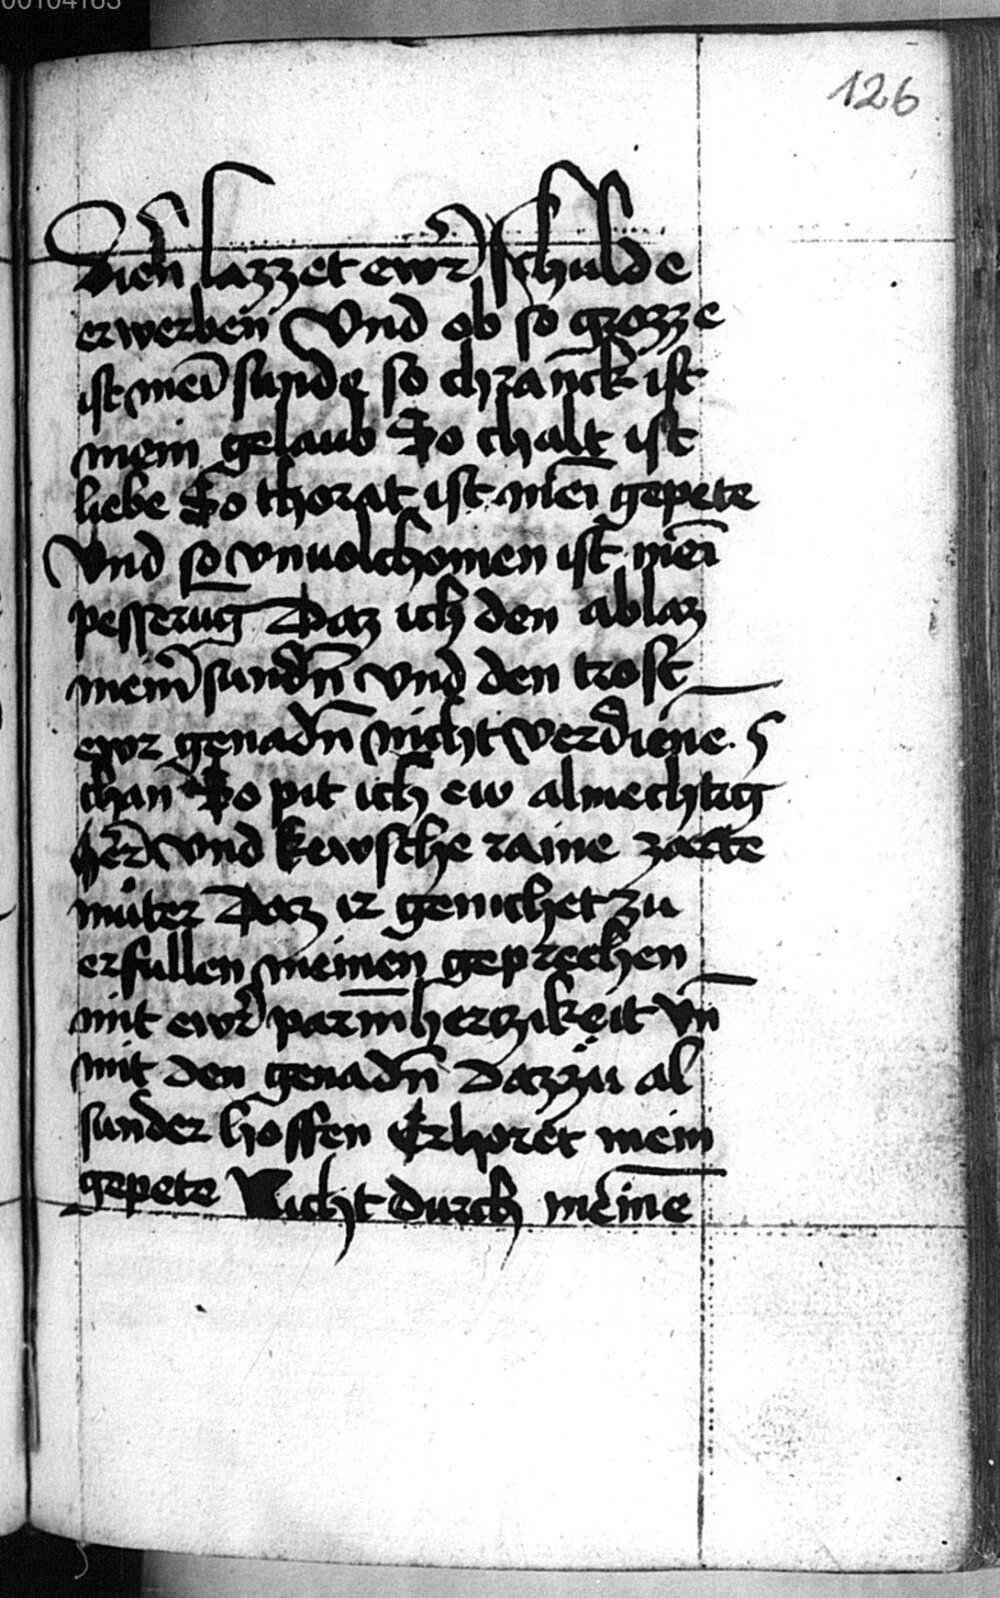 00104163
126
dien lazzet ewr̄ schulde
erwerben Vnd ob so grozze
ist mei̅ sunde so chranck ist
mein gelaub So chalt ist
liebe So thorat ist mei̅ gepete
Vnd so vnuolchomen ist mei̅
pesserūg Daz ich den ablaz
meinr̄ sundn̄ vnd den trost
ewr genadn̄ nicht verdiene
chan So pit ich ew almechtig
her̄ vnd kewsche raine zarte
muter Daz ir geruchet zu
erfullen meinen geprechen
mit ewr̄ parmhertzikeit vn̄
mit den genadn̄ Dazzu al
sunder hoffen Erhoret mein
gepete Nicht durch meine